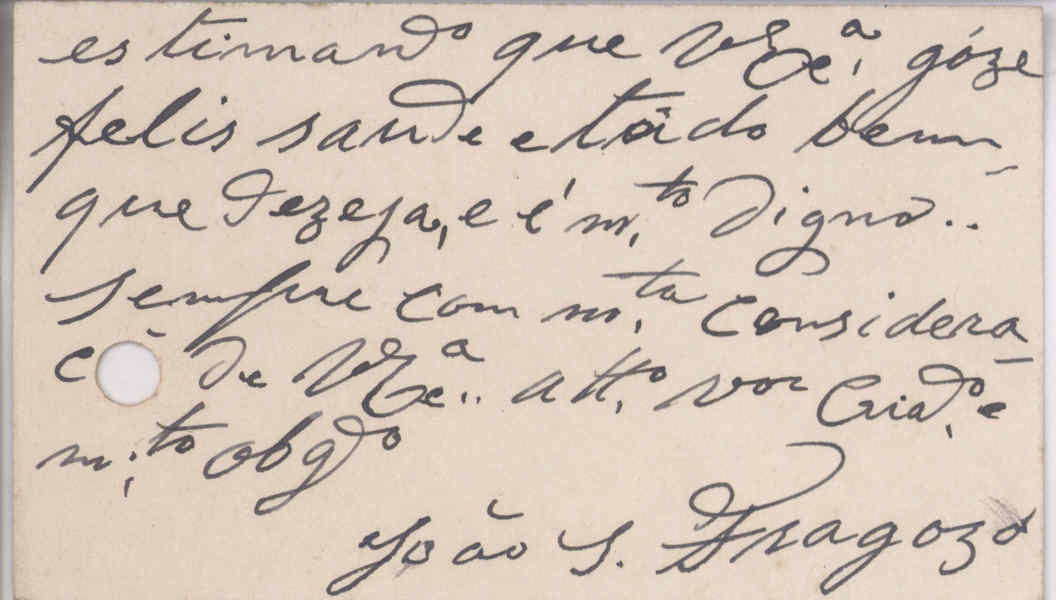 estimando que V Exc.ª góze
felis saude e tôdo bem
que dezeja, e é m.to digno..
sempre com m.ta considera
c de V Exc.ª.. att.o ven Criad.o e
m.to obgdo
João S. Fragozo